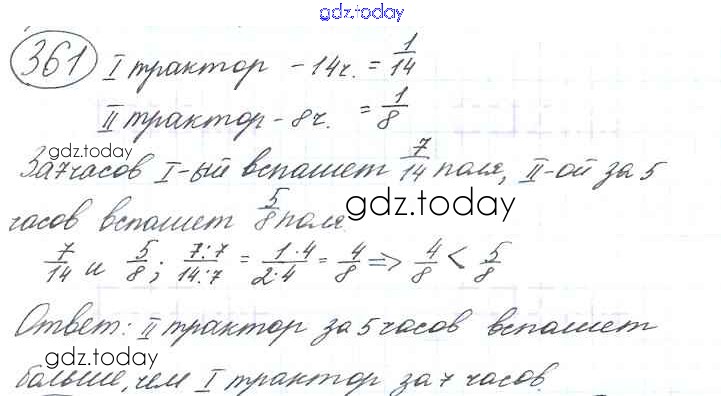 gdz.today
361 I трактор - 14ч. = 1/14
II трактор - 8ч. = 1/8
gdz.today
За 7 часов I-ый вспашет 7/14 поля, II-ой за 5
часов вспашет 5/8 поля.
gdz.today
7/14 и 5/8; 7:7/14:7 = 1·4/2·4 = 4/8 => 4/8 < 5/8
Ответ: II трактор за 5 часов вспашет
gdz.today
больше, чем I трактор за 7 часов.